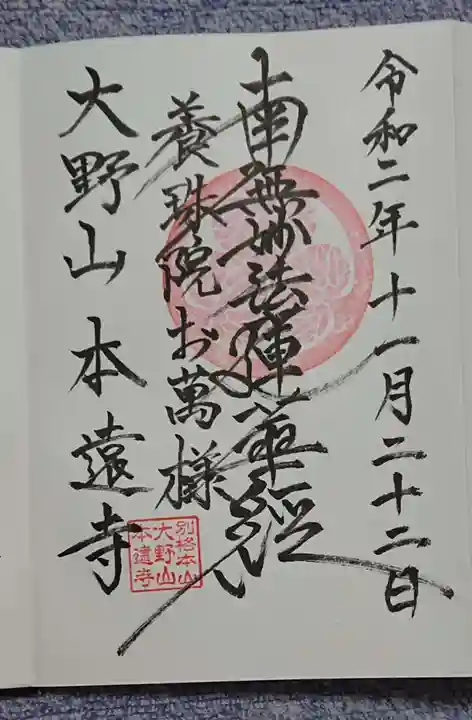 令和二年十一月二十二日
南無妙法蓮華経
養珠院お萬様
大野山本遠寺
別格本山
大野山
本遠寺